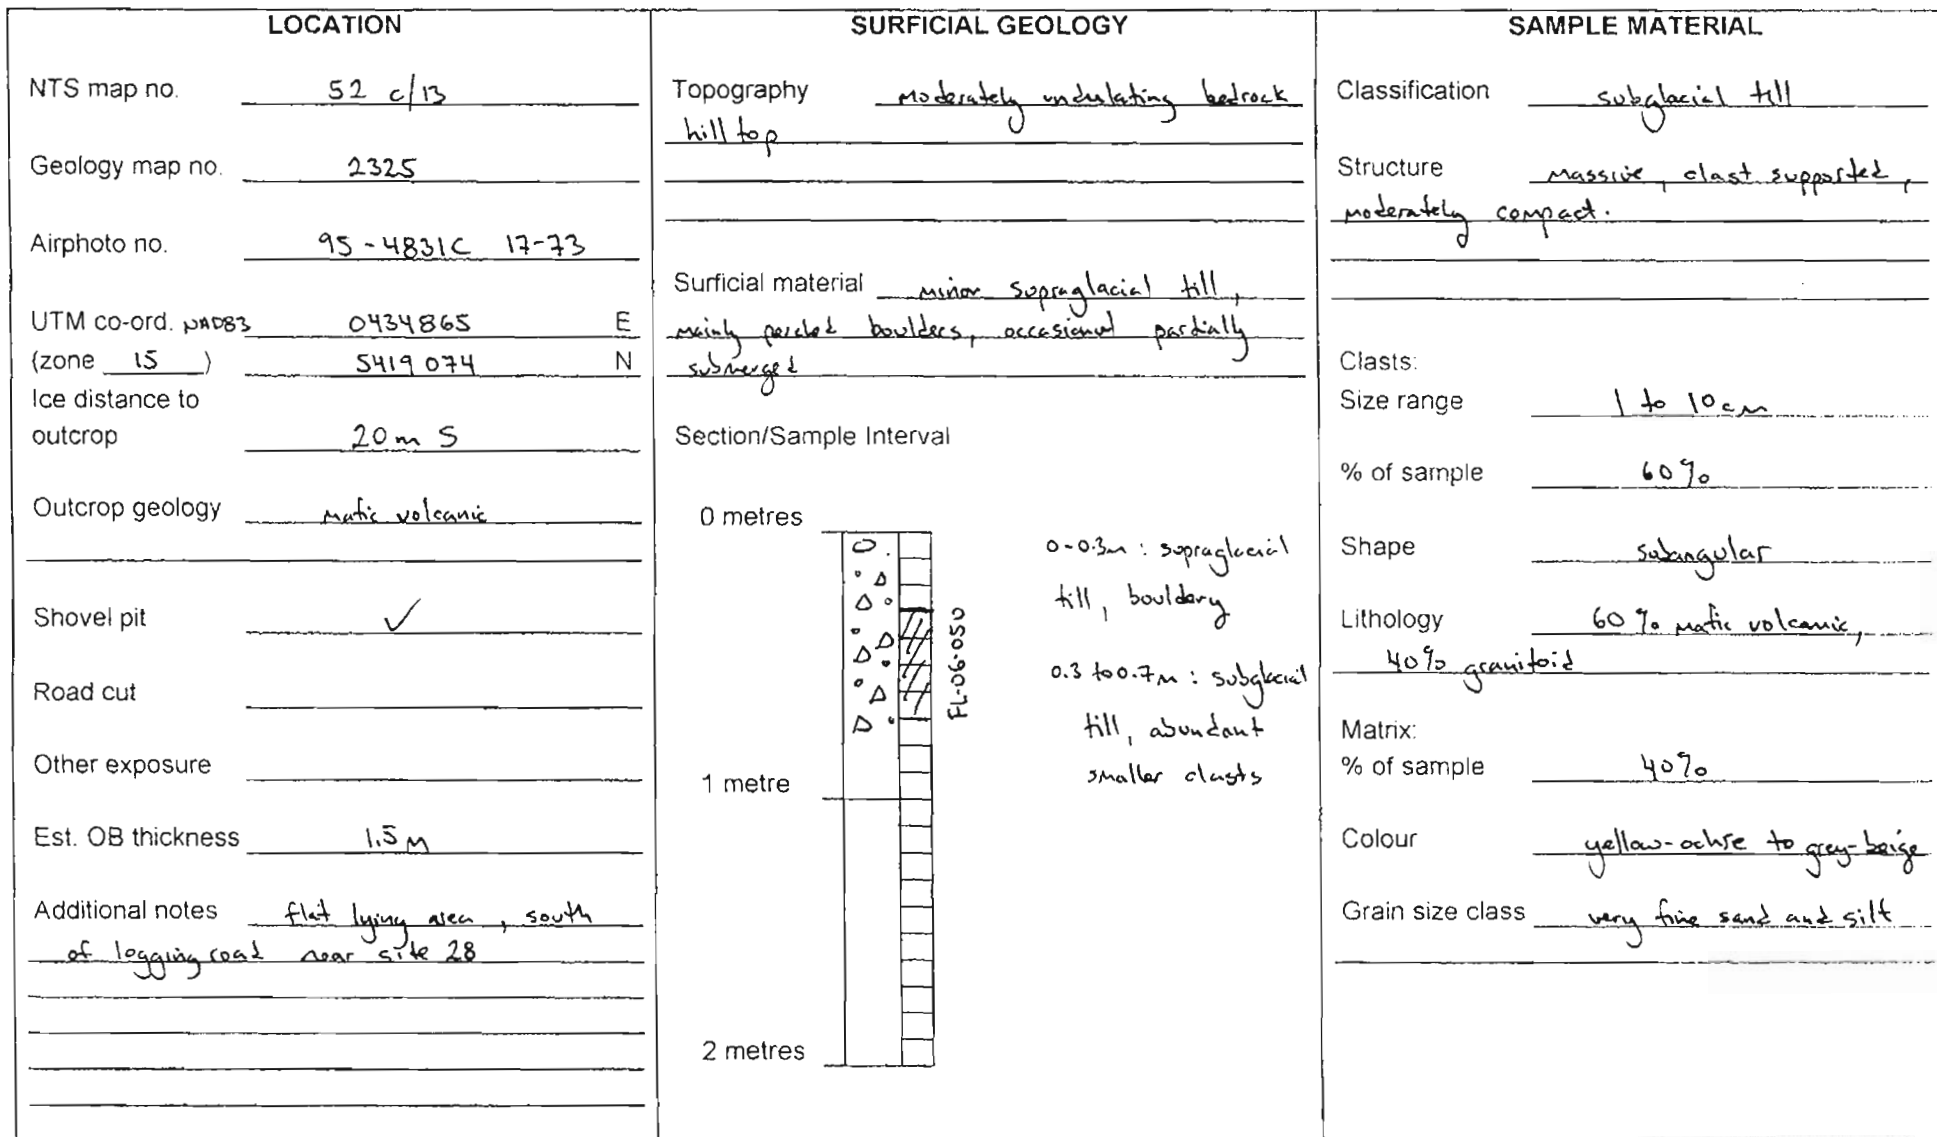 LOCATION
NTS map no. 52 c/13
Geology map no. 2325
Airphoto no. 95-4831C 17-73
UTM co-ord. NAD83 0434865 E
(zone 15 ) 5419074 N
Ice distance to
outcrop 20 m S
Outcrop geology mafic volcanic
Shovel pit ✓
Road cut
Other exposure
Est. OB thickness 1.5 m
Additional notes flat lying area, south
of logging road near site 28
SURFICIAL GEOLOGY
Topography moderately undulating bedrock
hill top
Surficial material minor supraglacial till,
mainly perched boulders, occasional partially
submerged
Section/Sample Interval
0 metres
1 metre
2 metres
FL-06-050
0-0.3m : supraglacial
till, bouldery
0.3 to 0.7m : subglacial
till, abundant
smaller clasts
SAMPLE MATERIAL
Classification subglacial till
Structure massive, clast supported,
moderately compact.
Clasts:
Size range 1 to 10 cm
% of sample 60%
Shape subangular
Lithology 60% mafic volcanic,
40% granitoid
Matrix:
% of sample 40%
Colour yellow-ochre to grey-beige
Grain size class very fine sand and silt